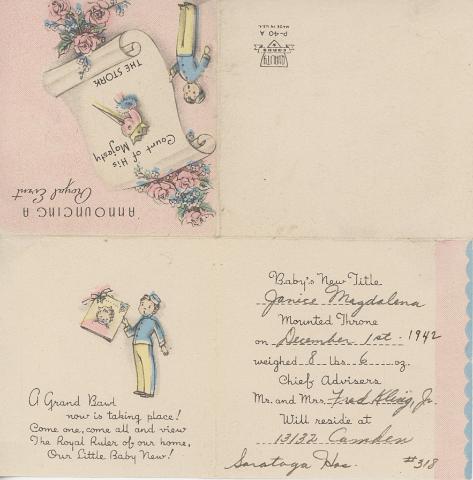 ANNOUNCING A
Royal Event
Court of His
Majesty
THE STORK
P-40 A
MADE IN U.S.A.
A Grand Bawl
now is taking place!
Come one, come all and view
The Royal Ruler of our home,
Our Little Baby New!
Baby's New Title
Janice Magdalena
Mounted Throne
on December 1st. 1942
weighed 8 lbs 6 oz.
Chief Advisers
Mr. and Mrs. Fred Kling, Jr.
Will reside at
13132 Camden
Saratoga Hos. #318